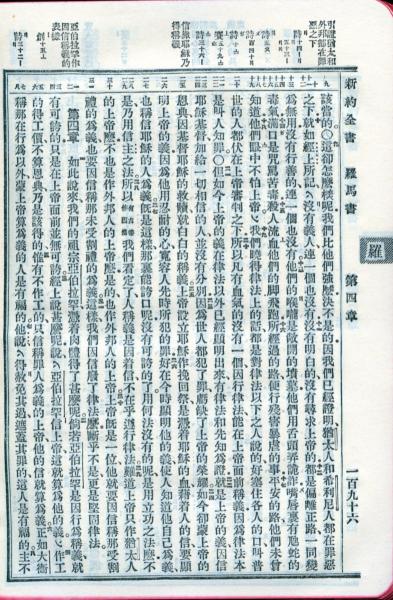 新約全書 羅馬書 第四章 一百九十六
羅
引證猶太和
外邦都在罪
惡之下
信耶穌乃
得稱義
亞伯拉罕作
因信稱義的
表樣
該當的○這卻怎麽樣呢我們比他們强麽決不是的因我們已經證明猶太人和希利尼人都在罪惡
之下就如經上所記沒有義人連一個也沒有沒有明白的沒有尋求上帝的都是偏離正路一同變
爲無用沒有行善的連一個也沒有他們的喉嚨是敞開的墳墓他們用舌頭弄詭詐嘴唇裏有虺蛇的
毒氣滿口是咒罵苦毒殺人流血他們的脚飛跑所經過的路便行殘害暴虐的事平安的路他們未曾
知道他們眼中不怕上帝○我們曉得律法上的話都是對律法以下之人說的好塞住各人的口叫普
世的人都伏在上帝審判之下所以凡有血氣的沒有一個因行律法能在上帝面前稱義因爲律法本
是叫人知罪○但如今上帝的義在律法以外已經顯明出來有律法和先知爲證就是上帝的義因信
耶穌基督加給一切相信的人並沒有分別因爲世人都犯了罪虧缺了上帝的榮耀如今卻蒙上帝的
恩典因基督耶穌的救贖就白白的稱義上帝設立耶穌作挽回祭是憑着耶穌的血藉着人的信要顯
明上帝的義因爲他用忍耐的心寬容人先時所犯的罪好在今時顯明他的義使人知道他自己爲義
也稱信耶穌的人爲義旣是這樣那裏能誇口呢沒有可誇的了用何法沒有的呢是用立功之法麽不
是乃用信主之法所以有古卷作因爲我們看定了人稱義是因着信不在乎遵行律法難道上帝只作猶太人
的上帝麽不也是作外邦人的上帝麽是的也作外邦人的上帝上帝旣是一位他就要因信稱那受割
禮的爲義也要因信稱那未受割禮的爲義這樣我們因信廢了律法麽斷乎不是更是堅固律法
第四章 如此說來我們的祖宗亞伯拉罕憑着肉體得了甚麽呢倘若亞伯拉罕是因行爲稱義就
有可誇的只是在上帝面前並無可誇經上說甚麽呢說亞伯拉罕信上帝這就算爲他的義作工
的得工價不算恩典乃是該得的惟有不作工的只信稱罪人爲義的上帝他的信就算爲義正如大衞
稱那在行爲以外蒙上帝算爲義的人是有福的他說得赦免其過遮蓋其罪的這人是有福的主不